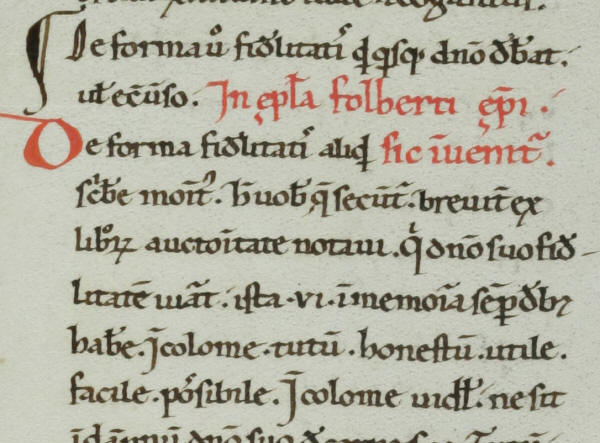 De forma ũ fidlitatis q̄ q̄sq; dn̄o d̄bat.
ul' ec̄ūso. In ep̄la folberti ep̄i.
De forma fidlitatis aliq̄d sic īuenit̃.
sc̃b̄e monit'. h̄ uob̄ q̄ secūt̃. breuit̃ ex
libroꝝ auctoritate notaui. Q̄ dn̄o suo fid-
litatē iurat. ista .vi. ī memoria semp̄ d̄bꝫ
hab̄e. Īcolome. tutū. honestū. utile.
facile. possibile. Īcolome uidel'. ne sit